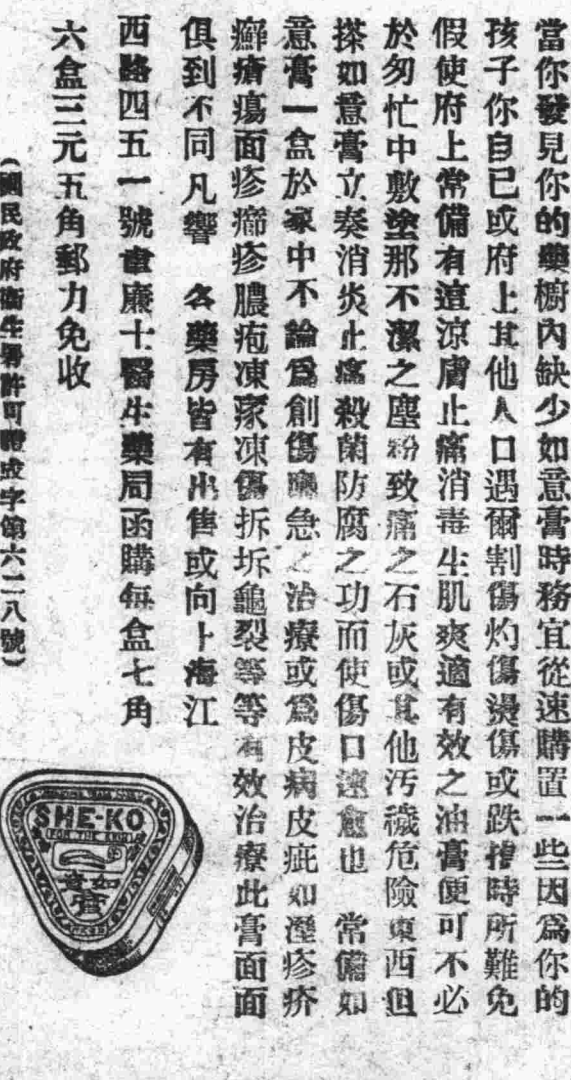 當你發見你的藥櫥內缺少如意膏時務宜從速購置一些因爲你的
孩子你自己或府上其他人口遇爾割傷灼傷燙傷或跌撞時所難免
假使府上常備有這涼膚止痛消毒生肌爽適有效之油膏便可不必
於匆忙中敷塗那不潔之塵粉致痛之石灰或其他汚穢危險東西但
搽如意膏立奏消炎止痛殺菌防腐之功而使傷口速愈也 常備如
意膏一盒於家中不論爲創傷急之治療或爲皮病皮疵如溼疹疥
癬瘡瘍面疹癤疹膿疱凍瘃凍傷拆坼龜裂等等有效治療此膏面面
俱到不同凡響 各藥房皆有出售或向上海江
西路四五一號韋廉士醫生藥局函購每盒七角
六盒三元五角郵力免收
(國民政府衞生署許可證成字第六二八號)
SHE-KO
FOR THE SKIN
如意
膏